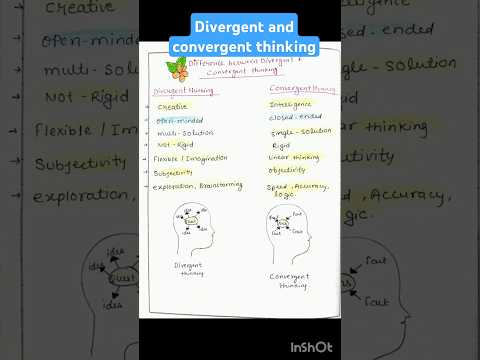 Divergent and
convergent thinking
Difference between Divergent &
Convergent thinking
Divergent thinking
Convergent thinking
→ Creative
Intelligence
→ Open-minded
Closed-ended
→ multi-solution
Single-solution
→ Not-Rigid
Rigid
→ Flexible / Imagination
Linear thinking
→ Subjectivity
Objectivity
→ exploration, Brainstorming
Speed, Accuracy,
logic.
idea
idea
idea
idea
Divergent
thinking
fact
fact
fact
fact
Convergent
thinking
Creative
Open-minded
closed-ended
multi-solu
ngle-solution
Not-Rigid
Rigid
Flexible / Im
ar thinking
Subjectivity
ctivity
exploration,
d, Accuracy,
gic.
InShOt